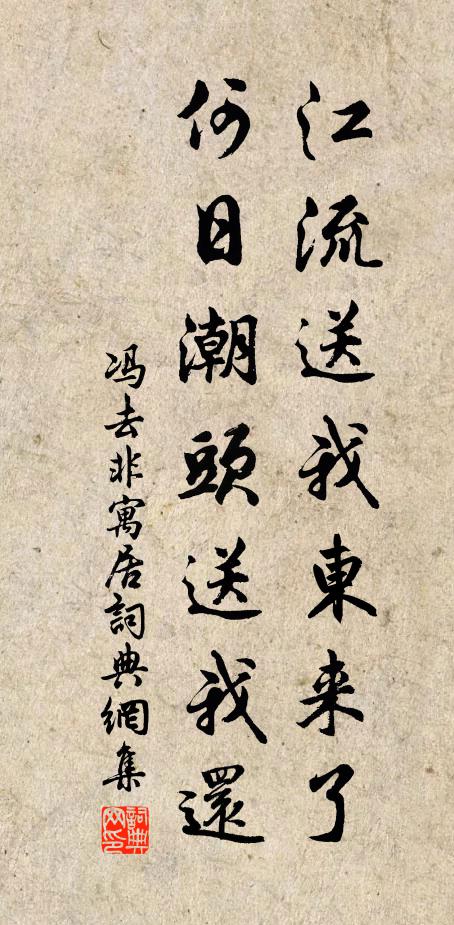 江流送我東来了
何日潮頭送我還
冯去非寓居詞典網集
詞典網印